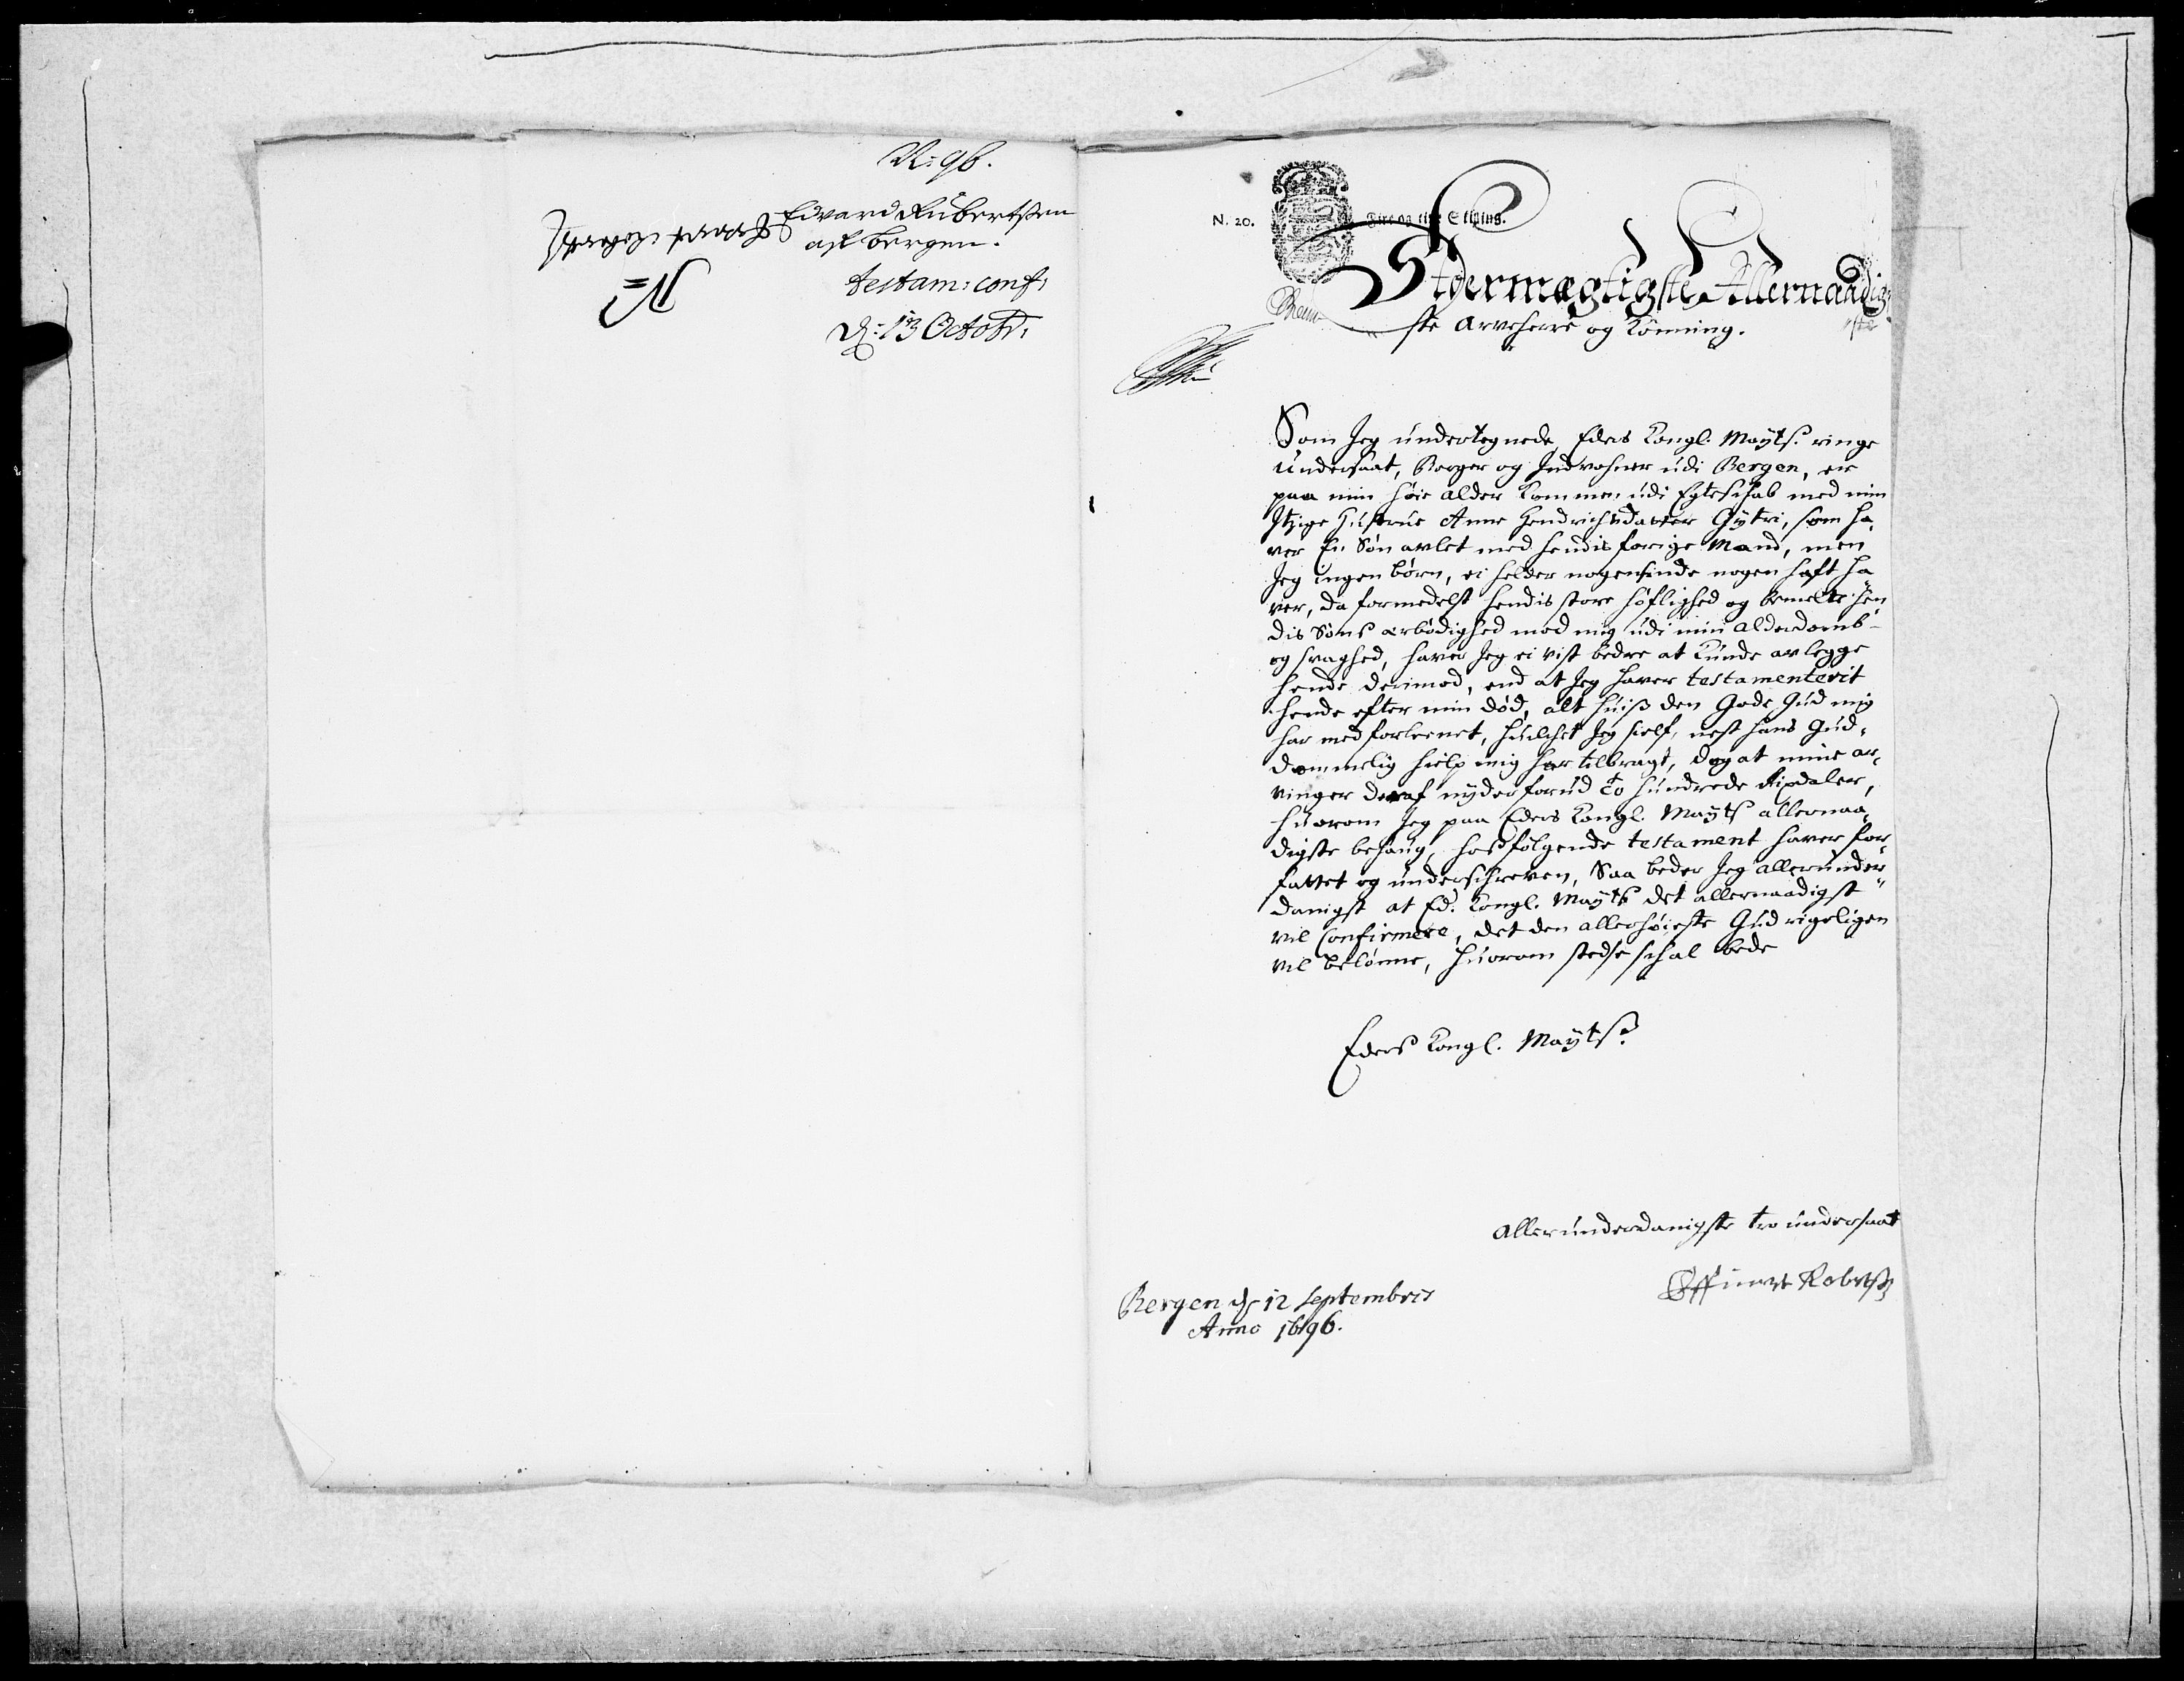 N: 96.
Edvard Rubertsen
aff Bergen.
testam: conf:
d: 13 Octobr:
N. 20.
Fire og tive Skiling.
Stoermægtigste Allernaadig-
ste Arveherre og Konning.
Som Jeg undertegnede Eders Kongl. Mayts. ringe
Undersaat, Borger og Indvohner udi Bergen, er
paa min høie alder kommen udi Egteschab med min
Itzige Hustrue Anne Hendrichsdatter Gÿtri, som ha-
ver En Søn avlet med hendis forige Mand, men
Jeg ingen børn, ei helder nogensinde nogen haft ha
ver, da formedelst hendis store høflighed og bemelte hen
dis Søns ærbødighed mod mig udi min alderdomb-
og svaghed, haver Jeg ei vist bedre at kunde avlegge
hende derimod, end at Jeg haver testamenterit
hende efter min død, alt huiß den Gode Gud mig
har med forleenet, huilchet Jeg sielf, nest hans Gud-
dommelig hielp mig har tilbragt, dog at mine ar-
vinger deraf nyder forud To hundrede Rixdaler,
huorom Jeg paa Eders Kongl. Mayts allernaa-
digste behaug, hosfølgende testament haver for-
fattet og underschreven, Saa beder Jeg allerunder-
danigst at Ed. Kongl. Mayts det allernaadigst
vil Confirmere, det den allerhøieste Gud rigeligen
vil belønne, huorom stedse schal bede
Eders Kongl. Mayts.
Allerunderdanigste tro undersaat
Robertß
Bergen d 12 Septembris
Anno 1696.